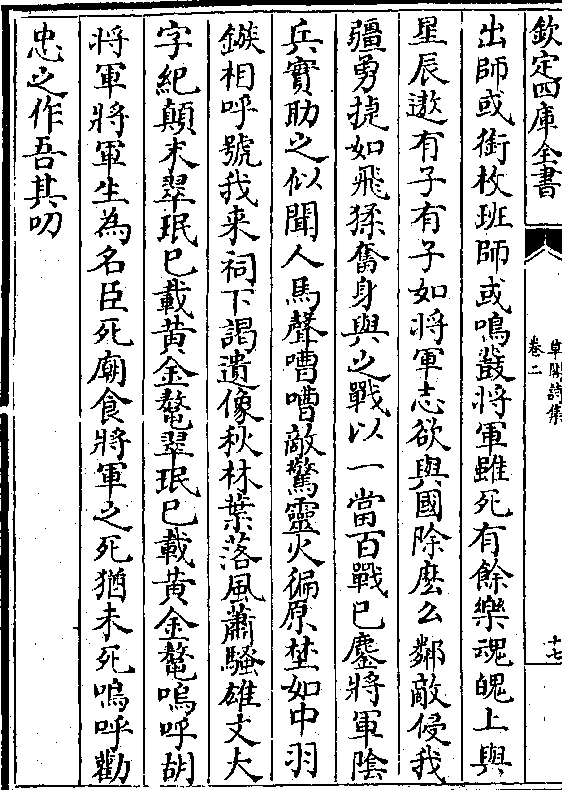 欽定四庫全書
卓閒詩集
卷二
十七
出師或銜枚班師或鳴鼗將軍雖死有餘樂魂魄上與
星辰遨有子有子如將軍志欲與國除麽么鄰敵侵我
疆勇捷如飛猱奮身與之戰以一當百戰已鏖將軍陰
兵實助之似聞人馬聲嘈嘈敵驚靈火徧原埜如中羽
鏃相呼號我来祠下謁遺像秋林葉落風蕭騷雄文大
字紀顛末翠珉已載黄金鼇翠珉已載黄金鼇嗚呼胡
將軍將軍生為名臣死廟食將軍之死猶未死嗚呼勸
忠之作吾其叨